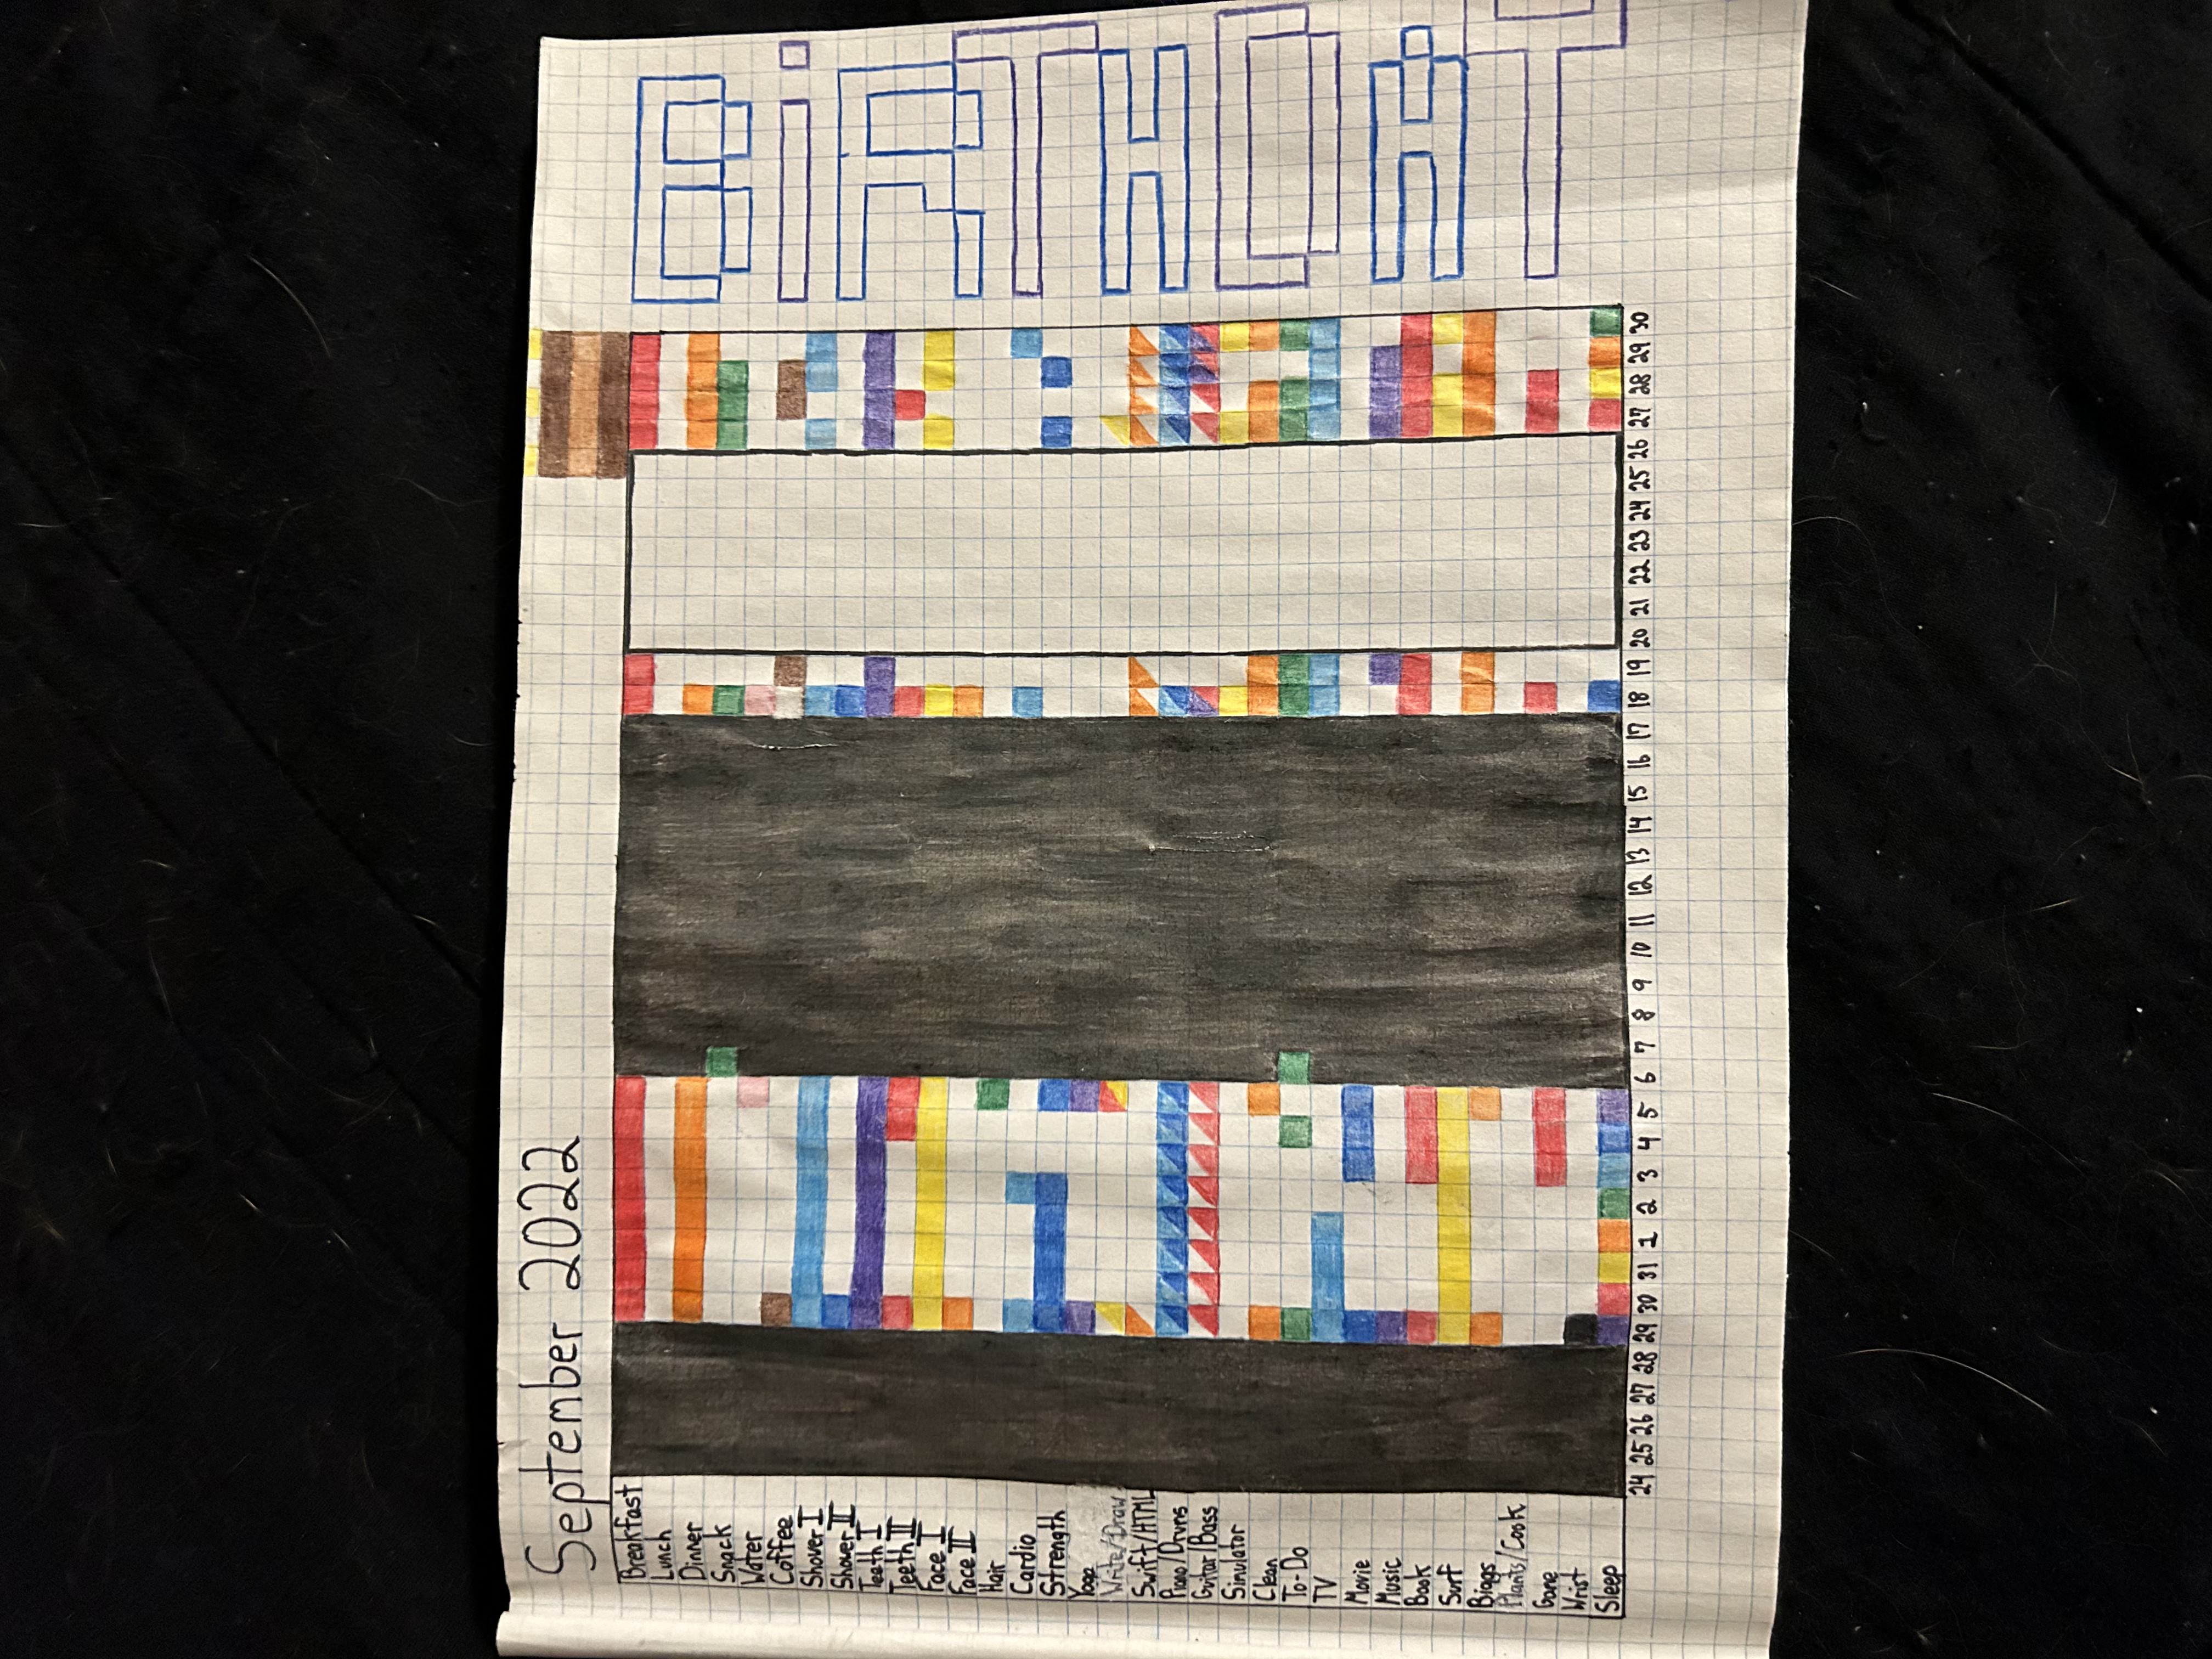 September 2022
Breakfast
Lunch
Dinner
Snack
Water
Coffee
Shower I
Shower II
Teeth I
Teeth II
Face I
Face II
Hair
Cardio
Strength
Yoga
Write/Draw
Swift/HTML
Piano/Drums
Guitar/Bass
Simulator
Clean
To-Do
TV
Movie
Music
Book
Surf
Biggs
Plants/Cook
Game
Wrist
Sleep
24 25 26 27 28 29 30 31 1 2 3 4 5 6 7 8 9 10 11 12 13 14 15 16 17 18 19 20 21 22 23 24 25 26 27 28 29 30
BiRTHDAY